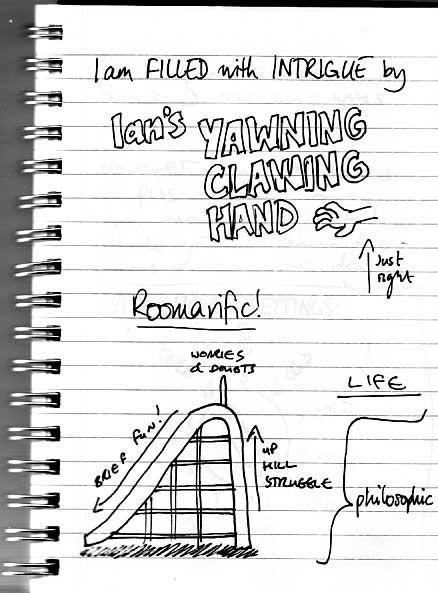 I am FILLED with INTRIGUE by
Ian's YAWNING
CLAWING
HAND
Just
right
Roomarific!
WORRIES
& DOUBTS
LIFE
BRIEF FUN!
UP
HILL
STRUGGLE
philosophic